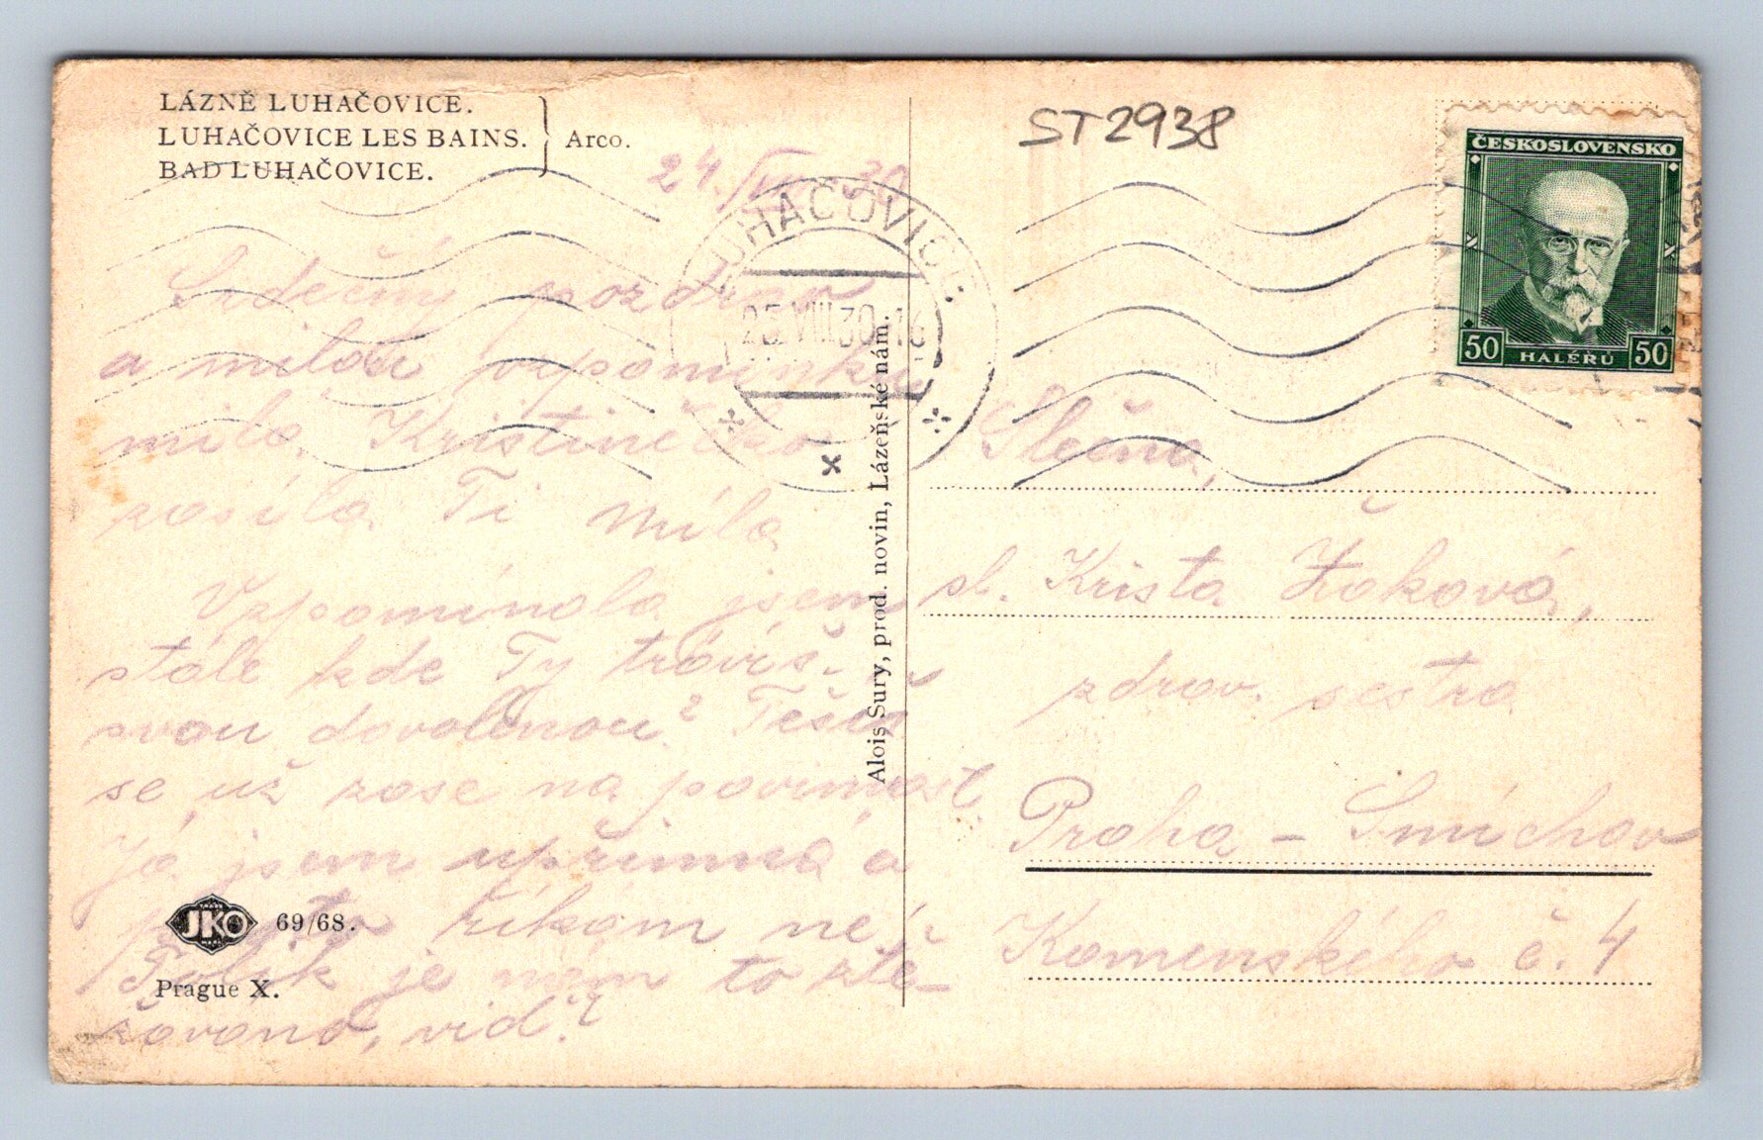 LÁZNĚ LUHAČOVICE.
LUHAČOVICE LES BAINS.
BAD LUHAČOVICE.
Arco.
ST2938
ČESKOSLOVENSKO
50 HALÉŘŮ 50
24./VIII. 30
LUHAČOVICE
25.VIII.30-16
Srdečný pozdrav
a milou vzpomínku
milá Kristinečko
zasílá Ti Míla
Vzpomínala jsem
stále kde Ty trávíš
svou dovolenou? Těšíš
se už zase na povinnost
Já jsem upřímná a
proto říkám ne,
Tolik je nám to ztě-
žováno, viď?
Alois Sury, prod. novin, Lázeňské nám.
Slečna,
sl. Krista Žáková,
zdrav. sestra
Praha - Smíchov
Komenského č. 4
JKO 69/68.
Prague X.